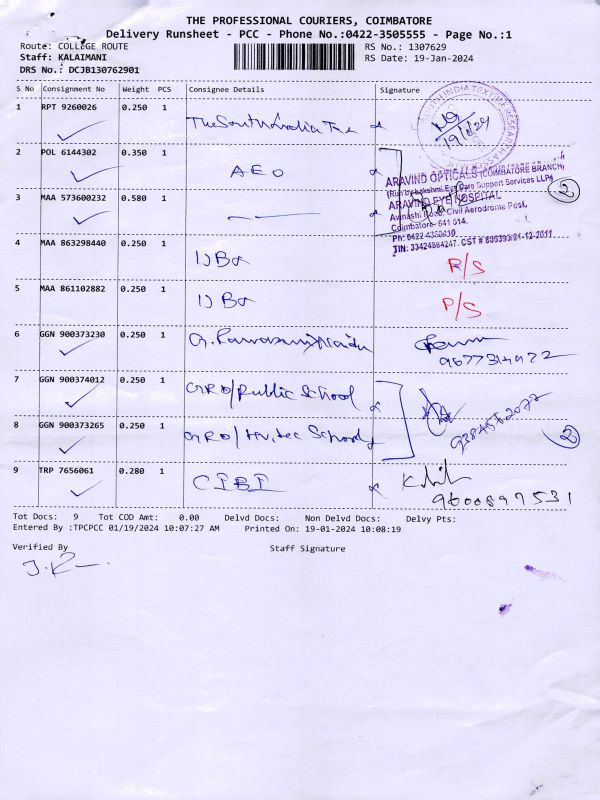 THE PROFESSIONAL COURIERS, COIMBATORE
Delivery Runsheet - PCC - Phone No.:0422-3505555 - Page No.:1
Route: COLLEGE ROUTE RS No.: 1307629
Staff: KALAIMANI RS Date: 19-Jan-2024
DRS No.: DCJB130762901
S No Consignment No Weight PCS Consignee Details Signature
1 RPT 9260026 0.250 1 The South India
19/1/24
2 POL 6144302 0.350 1 AEO
ARAVIND OPTICALS (COIMBATORE BRANCH)
(Run by Lakshmi Eye Care Support Services LLP)
2
3 MAA 573600232 0.580 1
ARAVIND EYE HOSPITAL
Avinashi Road, Civil Aerodrome Post,
Coimbatore- 641 014.
Ph: 0422 4360410
4 MAA 863298440 0.250 1 R/S
5 MAA 861102882 0.250 1 P/S
6 GGN 900373230 0.250 1
7 GGN 900374012 0.250 1 GRD/Public School
8 GGN 900373265 0.250 1 2
9 TRP 7656061 0.280 1 CIBI
9600897531
Tot Docs: 9 Tot COD Amt: 0.00 Delvd Docs: Non Delvd Docs: Delvy Pts:
Entered By :TPCPCC 01/19/2024 10:07:27 AM Printed On: 19-01-2024 10:08:19
Verified By Staff Signature